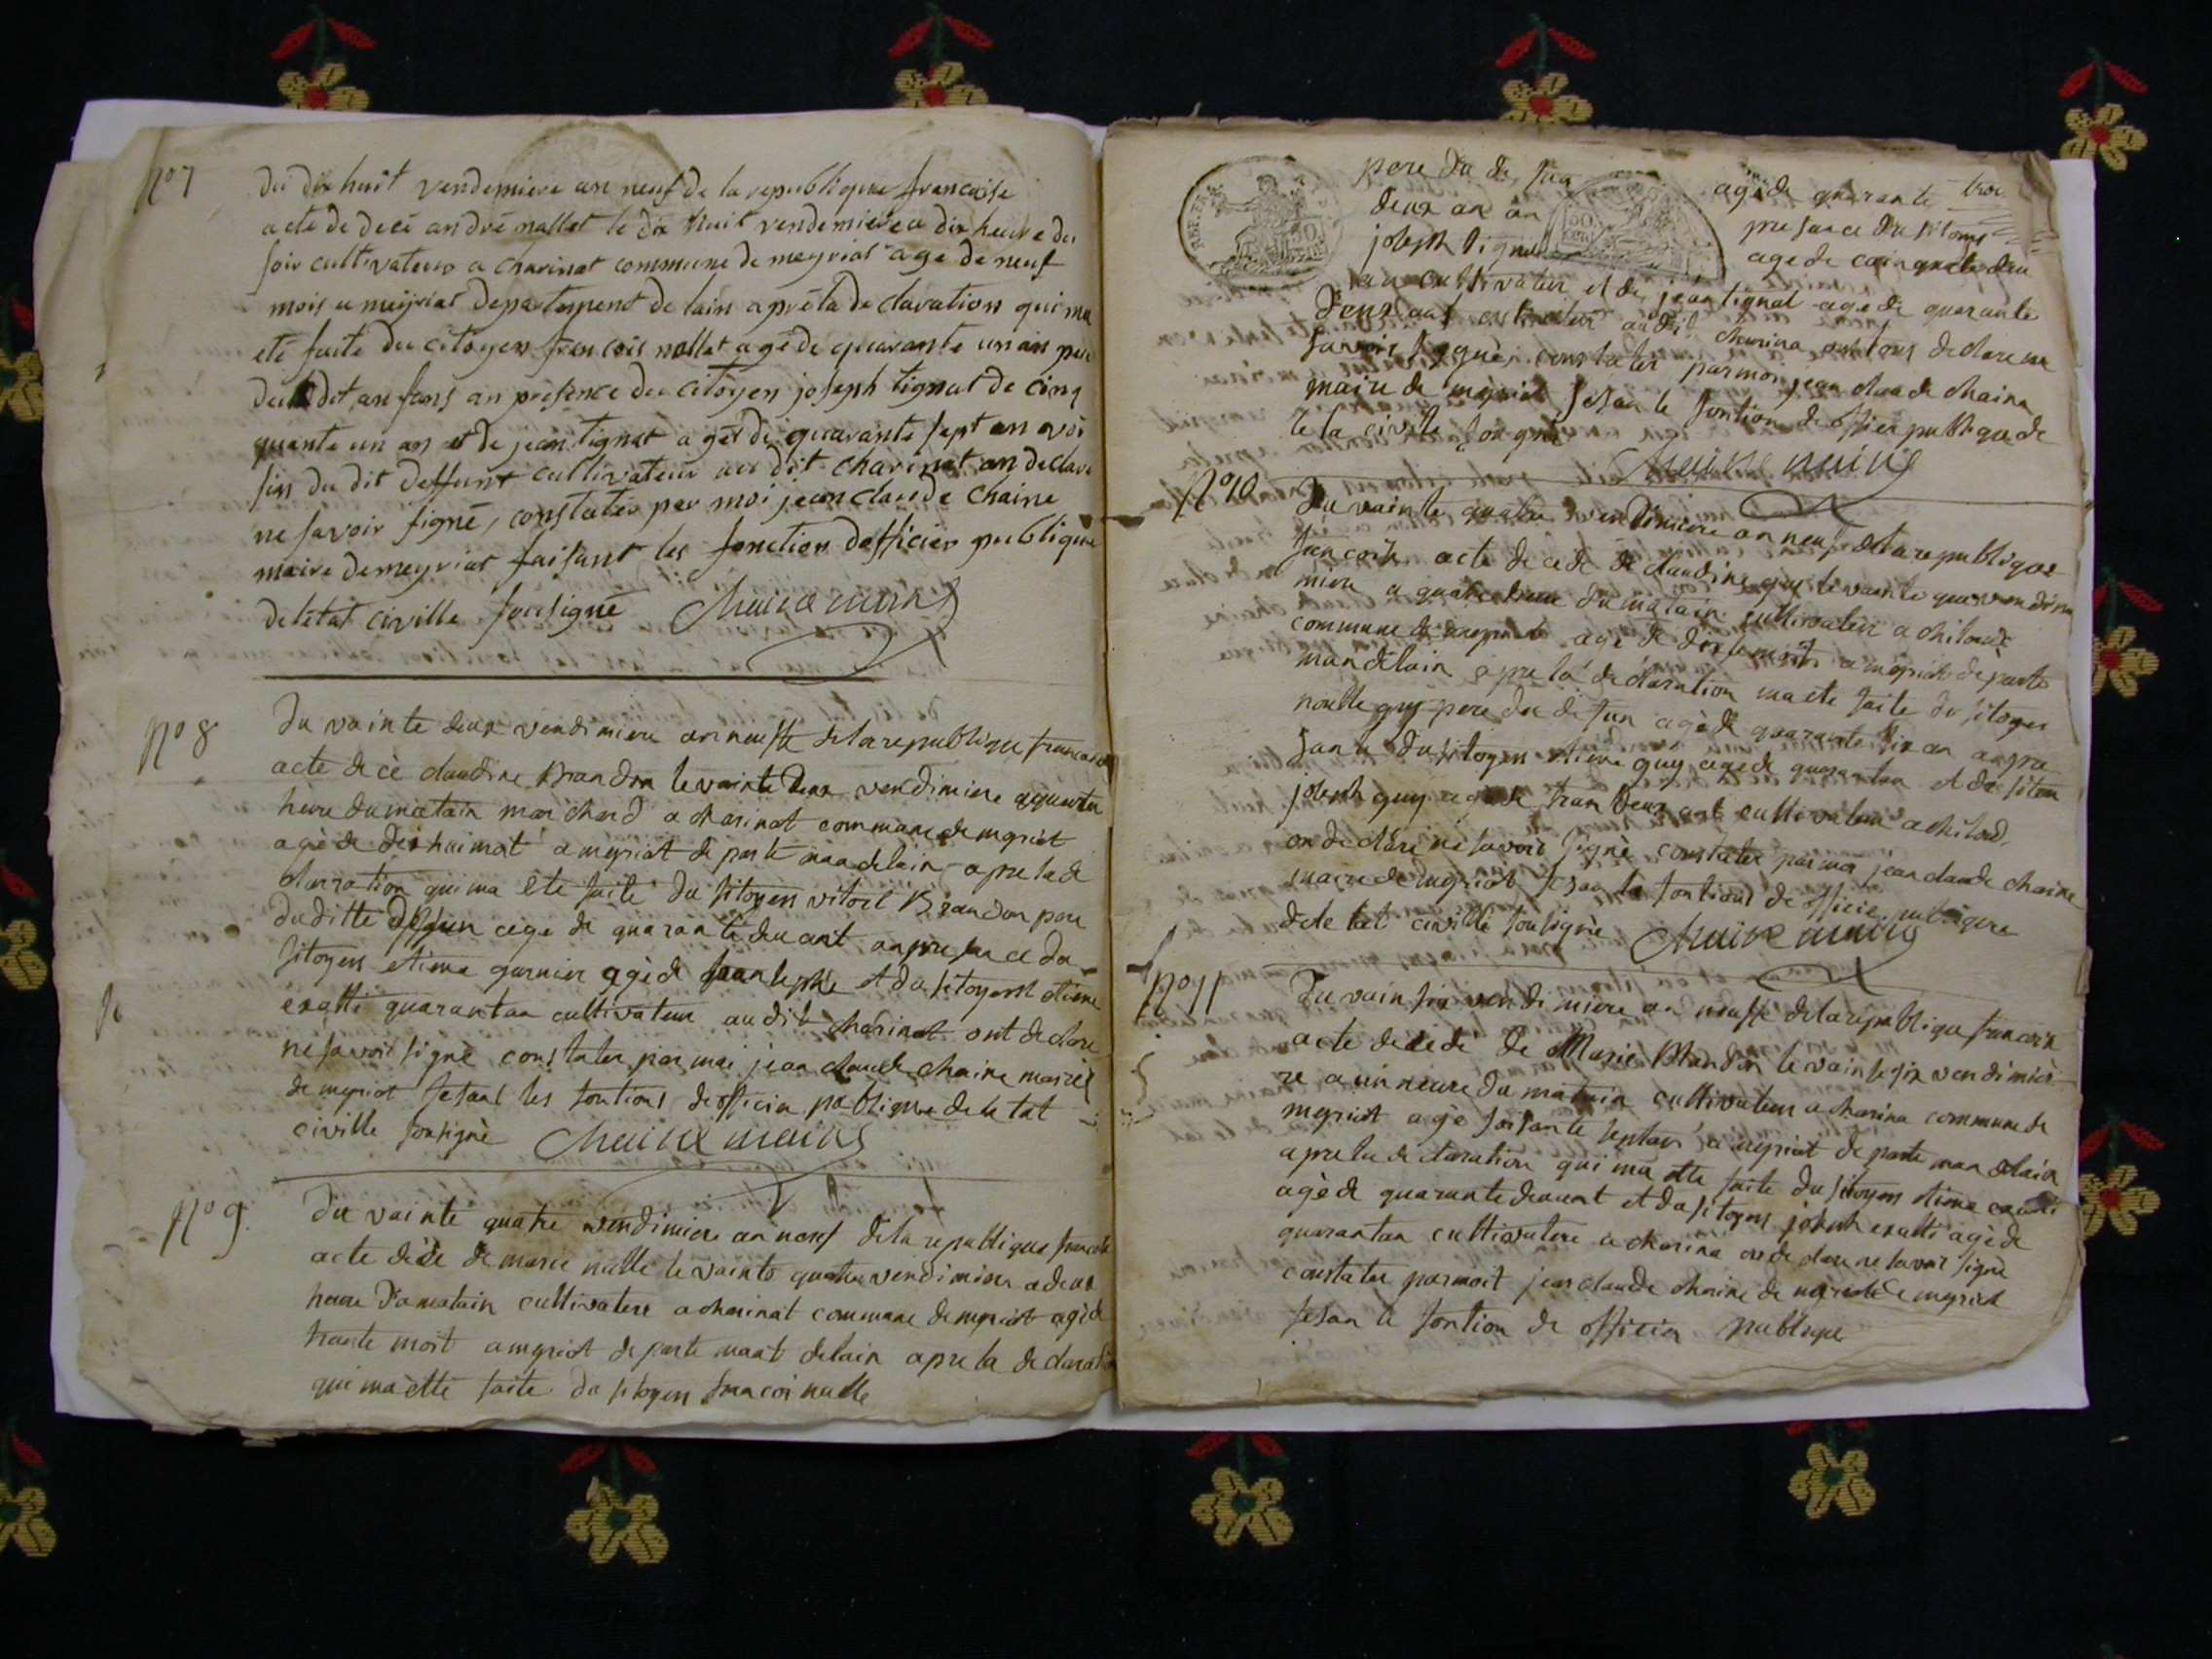 no 7
du dix huit vendemiere an neuf de la republique francaise
acte de decé andré nallet le dix huit vendemiere a dix heure du
soir cultivateur a charinat commune de meyriat agé de neuf
mois a meyriat departement de lain aprè la declaration qui ma
eté faite du citoyen francois nallet agé de quarante un an pere
du dit anfans an présence du citoyen joseph tignat de cinq
quante un an et de jean tignat agét de quarante sept an voi
sin du dit deffunt cultivateur au dit charinat an declare
ne savoir signé, constater par moi jean claude chaine
maire de meyriat faisant les fonction dofficier publique
de létat civille sousigné Chaine maire
no 8
Du vainte deux vendimiere an neuffe de la republique francaise
acte de cè claudine Brandon le vainte deux vendimiere a quatre
heure du matain marchand a charinat commune de myriat
agè de dix hui mat a myriat de parte man delain apre la de
claration qui ma ète faite du sitoyen vitoit Brandon pere
du ditte defun agè de quarante deu ant an presance du
sitoyen etiene garnier agè de et du sitoyent etiene
exatti quarantan cultivateur audit charinat ont declare
ne savoir signè constater par moi jean claude chaine maire
de myriat fesant les fontions de officier publique de le tat
civille sousignè Chaine maire
no 9
Du vainte quatre vendimiere an neuf de la republique francaise
acte dècè de marie nalle le vainte quatre vendimiere a deux
heure du matain cultivatere a charinat commune de myriat agè de
trante mois a myriat de parte mant delain apre la declaration
qui ma ètte faite du sitoyen francoi nalle
pere du de fun agè de quarante
deux an an presance du sitoyens
joseph tignat age de cainquante deu
an cultivateur et de jean tignat age de quarante
deux ant cultivateur audit charina ont tous declare ne
savoir signè, constater par moi jean claude chaine
maire de myriat fesan le fontion de officier publique de
le ta civile sousigne
Chaine maire
no 10
Du vainte quatre vendimiere an neuf de la republique
francoise acte de cede de claudine guy le vainte quat vendimi
miere a quatre heure du matain cultivateur a chiloud
commune de myriat agè de dix a myriat de parte
man delain apre la declaration ma ete faite du sitoyen
guy pere du defun agè de quarante six an an pre
sance du sitoyen etiene guy age de quarantan et du sitoien
joseph guy age de tran deux ant cultivateur a chiloud
on declare ne savoir signè constater par moi jean claude chaine
maire de myriat fesan la fontions de officie publique
de le tat civille sousignè Chaine maire
no 11
Du vain six vendimiere an neuffe de la republique francoise
acte de cede de Marie Blandon le vainte six vendimiè
re a un neure du matain cultivateur a charina commune de
myriat agè soisante septans a myriat de parte man delain
apre la declaration qui ma ette faite du sitoyen etiene exatti
agè de quarante deuant et du sitoyen joseph exatti agè de
quarantan cultivatere a charina on de clare ne savoir signe
constater par moit jean claude chaine de myriat
fesan le fontion de officier publique